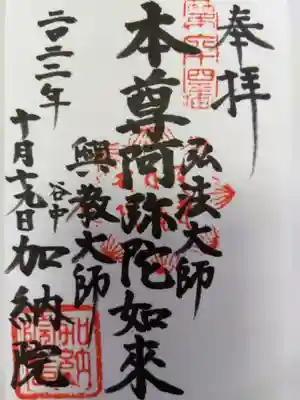 奉拝
第六十四番
弘法大師
本尊阿弥陀如來
興教大師
二〇二二年
十月十九日
谷中
加納院